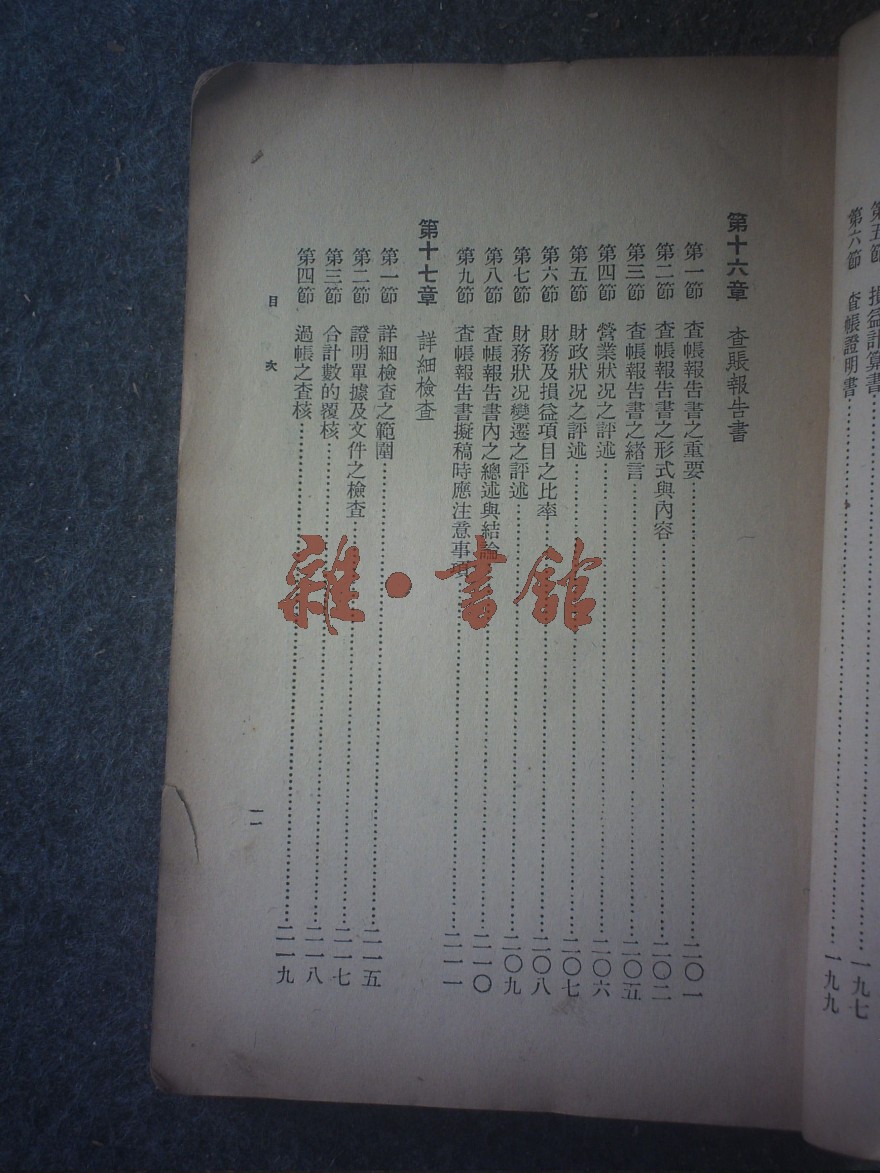 第五節 損益計算書……一九七
第六節 查帳證明書……一九九
第十六章 查賬報告書
第一節 查帳報告書之重要……二〇一
第二節 查帳報告書之形式與內容……二〇二
第三節 查帳報告書之緒言……二〇五
第四節 營業狀况之評述……二〇六
第五節 財政狀况之評述……二〇七
第六節 財務及損益項目之比率……二〇八
第七節 財務狀况變遷之評述……二〇九
第八節 查帳報告書內之總述與結論……二一〇
第九節 查帳報告書擬稿時應注意事項……二一一
第十七章 詳細檢查
第一節 詳細檢查之範圍……二一五
第二節 證明單據及文件之檢查……二一七
第三節 合計數的覆核……二一八
第四節 過帳之查核……二一九
目次
一一
雜·書館